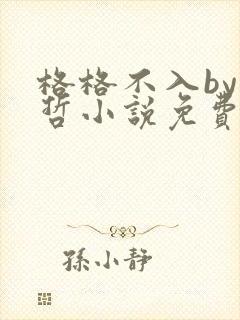 格格不入by
哲小說免費
孫小靜